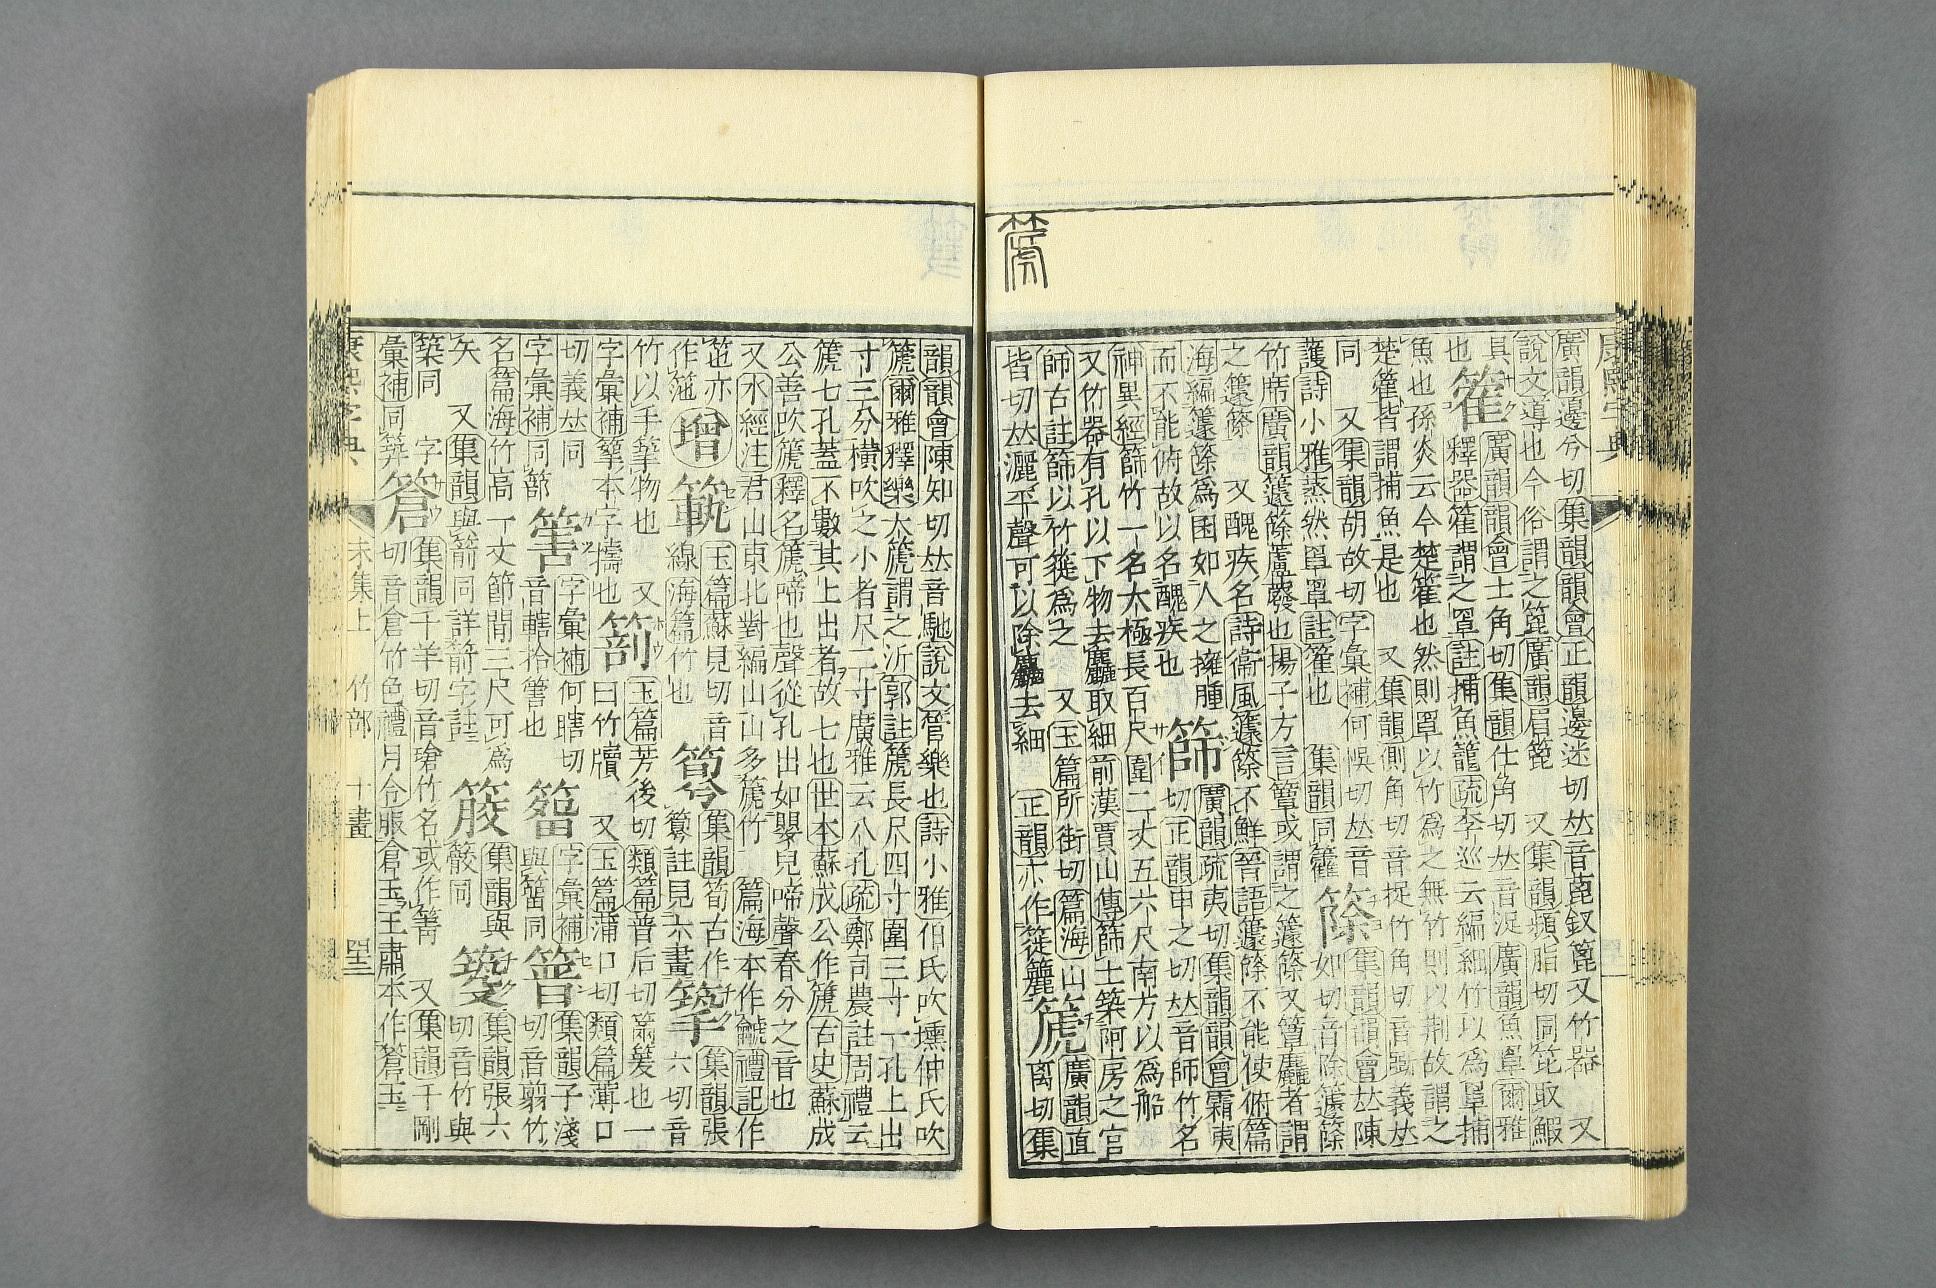 康熙字典
篪
廣韻邊兮切集韻韻會正韻邊迷切𠀤音蓖釵篦又竹器　又
說文導也今俗謂之篦廣韻眉篦　又集韻頻脂切同笓取鰕
具　篧　廣韻韻會士角切集韻仕角切𠀤音浞廣韻魚罩爾雅
也　釋器篧謂之罩註捕魚籠疏李巡云編細竹以爲罩捕
魚也孫炎云今楚篧也然則罩以竹爲之無竹則以荆故謂之
楚篧皆謂捕魚是也　又集韻側角切音捉竹角切音斲義𠀤
同　又集韻胡故切字彙補何悞切𠀤音　篨　集韻韻會𠀤陳
護詩小雅烝然罩罩註篧也　集韻同籱　如切音除籧篨
竹席廣韻籧篨蘆䕠也揚子方言簟或謂之籧篨又簟麤者謂
之籧篨　又醜疾名詩衞風籧篨不鮮晉語籧篨不能使俯篇
海編籧篨爲囷如人之擁腫　篩　廣韻疏夷切集韻韻會霜夷
而不能俯故以名醜疾也　切正韻申之切𠀤音師竹名
神異經篩竹一名太極長百尺圍二丈五六尺南方以爲船
又竹器有孔以下物去麤取細前漢賈山傳篩土築阿房之宮
師古註篩以竹簁爲之　又玉篇所街切篇海山　篪　廣韻直
皆切𠀤灑平聲可以除麤去細　正韻亦作簁籭　離切集
韻韻會陳知切𠀤音馳說文管樂也詩小雅伯氏吹壎仲氏吹
篪爾雅釋樂大篪謂之沂郭註篪長尺四寸圍三寸一孔上出
寸三分橫吹之小者尺二寸廣雅云八孔疏鄭司農註周禮云
篪七孔蓋不數其上出者故七也世本蘇成公作篪古史蘇成
公善吹篪釋名篪啼也聲從孔出如嬰兒啼聲春分之音也
又水經注君山東北對編山山多篪竹　篇海本作䶵禮記作
竾亦　增　䈣　玉篇蘇見切音　筂　集韻筍古作　䇠　集韻張
作箎　線海篇竹也　籑註見六畫　六切音
竹以手䇠物也　又　箁　玉篇芳後切類篇普后切䈬䈊也一
字彙補䇠本字擣也　曰竹牘　又玉篇蒲口切類篇薄口
切義𠀤同　䈑　字彙補何瞎切　䈞　字彙補　䈯　集韻子淺
字彙補同節　音轄拾䈑也　與䈞同　切音翦竹
名篇海竹高一丈節閒三尺可爲　䈦　集韻與　築　集韻張六
矢　又集韻與箭同詳箭字註　筊同　切音竹與
築同　字　䈮　集韻千羊切音瑲竹名或作篬　又集韻千剛
彙補同筭　切音倉竹色禮月令服倉玉王肅本作䈮玉
康熙字典　未集上　竹部　十畫